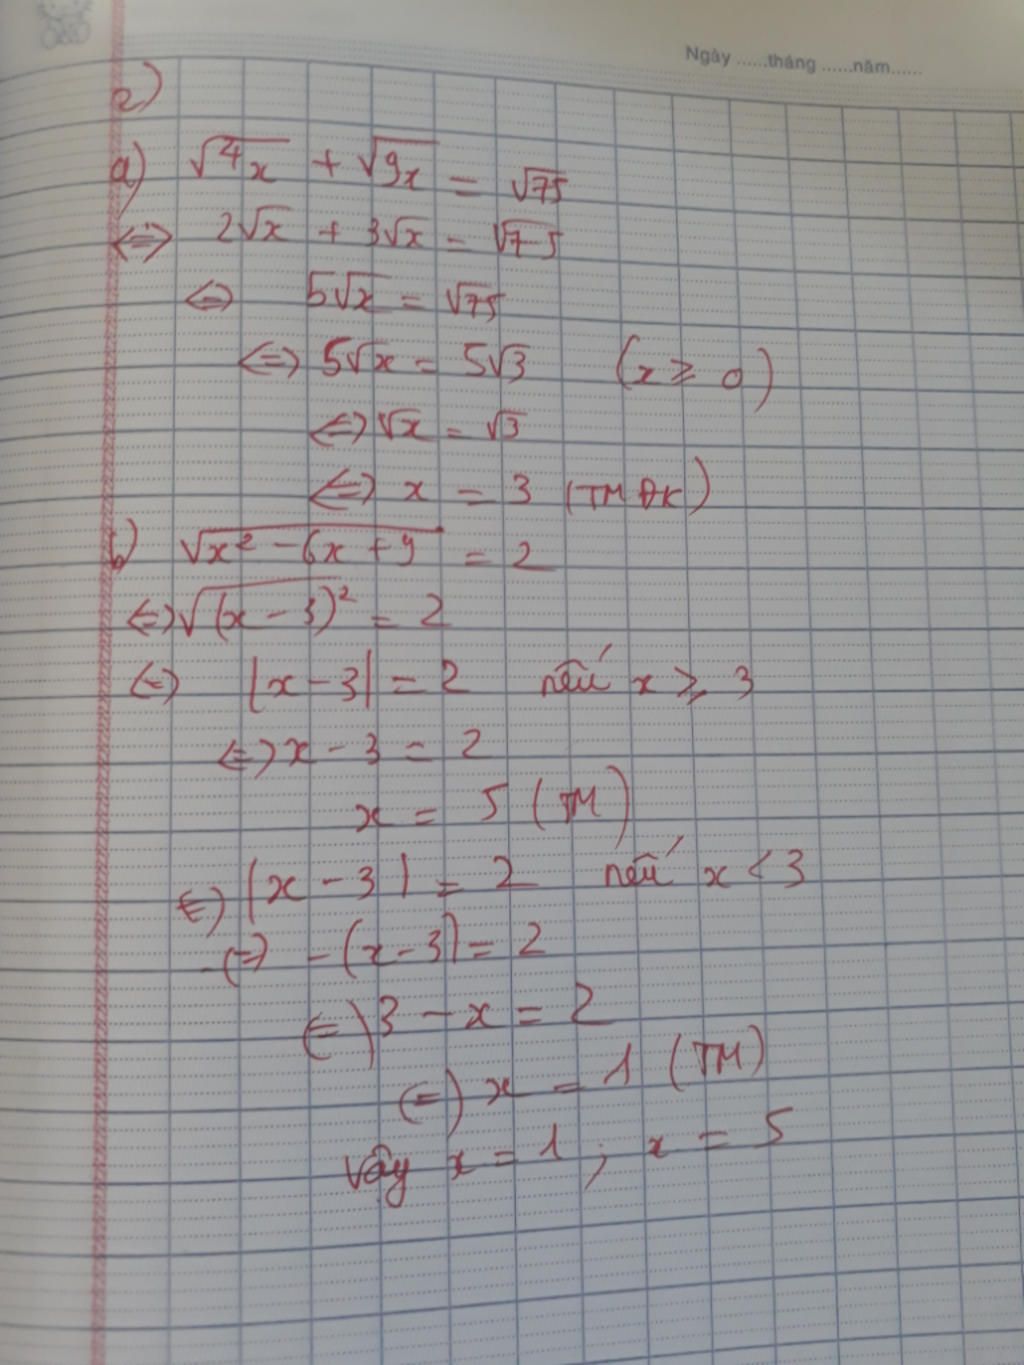 Ngày ......tháng ......năm......
2)
a) √4x + √9x = √75
<=> 2√x + 3√x = √75
<=> 5√x = √75
<=> 5√x = 5√3 (x ≥ 0)
<=> √x = √3
<=> x = 3 (TMĐK)
b) √x² - 6x + 9 = 2
<=> √(x - 3)² = 2
<=> |x - 3| = 2 nếu x ≥ 3
<=> x - 3 = 2
x = 5 (TM)
<=> |x - 3| = 2 nếu x < 3
<=> -(x - 3) = 2
<=> 3 - x = 2
<=> x = 1 (TM)
Vậy x = 1 ; x = 5